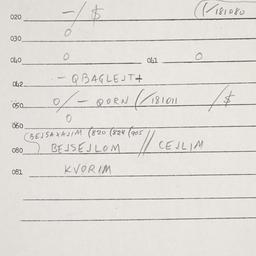 020 - / $ (/181080
030 0
040 0 041 0
- QBAGLEJT+
042
050 0/ - QORN (/181011 /$
060 0
(BEJSAXAJIM (820 (824 (905
080 BEJSEJLOM // CEJLIM
081 KVORIM